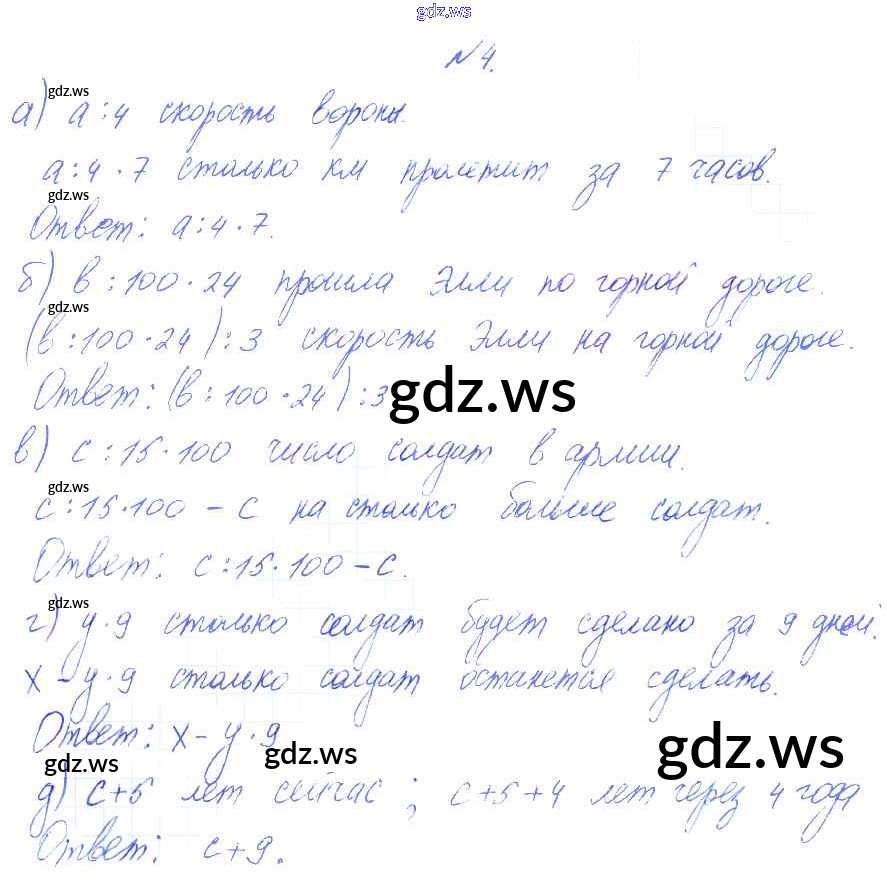 gdz.ws
№ 4.
gdz.ws
а) a : 4 скорость вороны.
a : 4 · 7 столько км пролетит за 7 часов.
gdz.ws
Ответ: a : 4 · 7.
б) в : 100 · 24 прошла Элли по горной дороге.
gdz.ws
(в : 100 · 24) : 3 скорость Элли на горной дороге.
Ответ: (в : 100 · 24) : 3
gdz.ws
в) c : 15 · 100 число солдат в армии.
gdz.ws
c : 15 · 100 - c на столько больше солдат.
Ответ: c : 15 · 100 - c.
gdz.ws
г) y · 9 столько солдат будет сделано за 9 дней.
x - y · 9 столько солдат останется сделать.
Ответ: x - y · 9
gdz.ws
gdz.ws
gdz.ws
д) c + 5 лет сейчас ; c + 5 + 4 лет через 4 года
Ответ: c + 9.